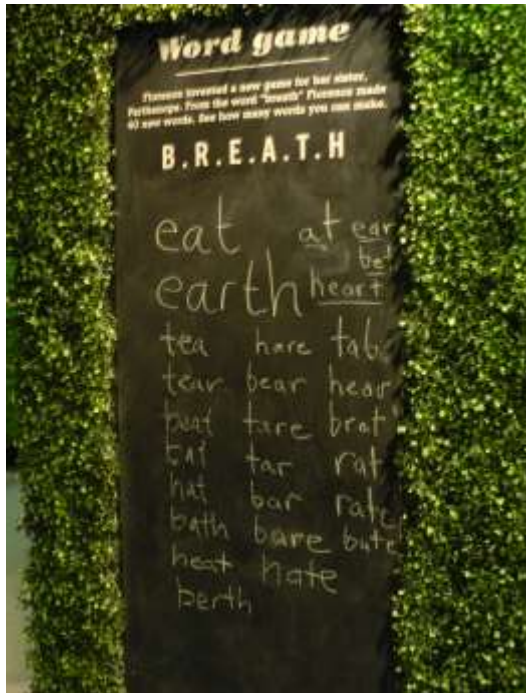 Word game
Florence invented a new game for her sister,
Parthenope. From the word "breath" Florence made
40 new words. See how many words you can make.
B.R.E.A.T.H
eat at ear
bet
earth heart
tea hare tab
tear bear hear
beat tare brat
tar rat
hat bar rate
bath bare
heat hate
berth